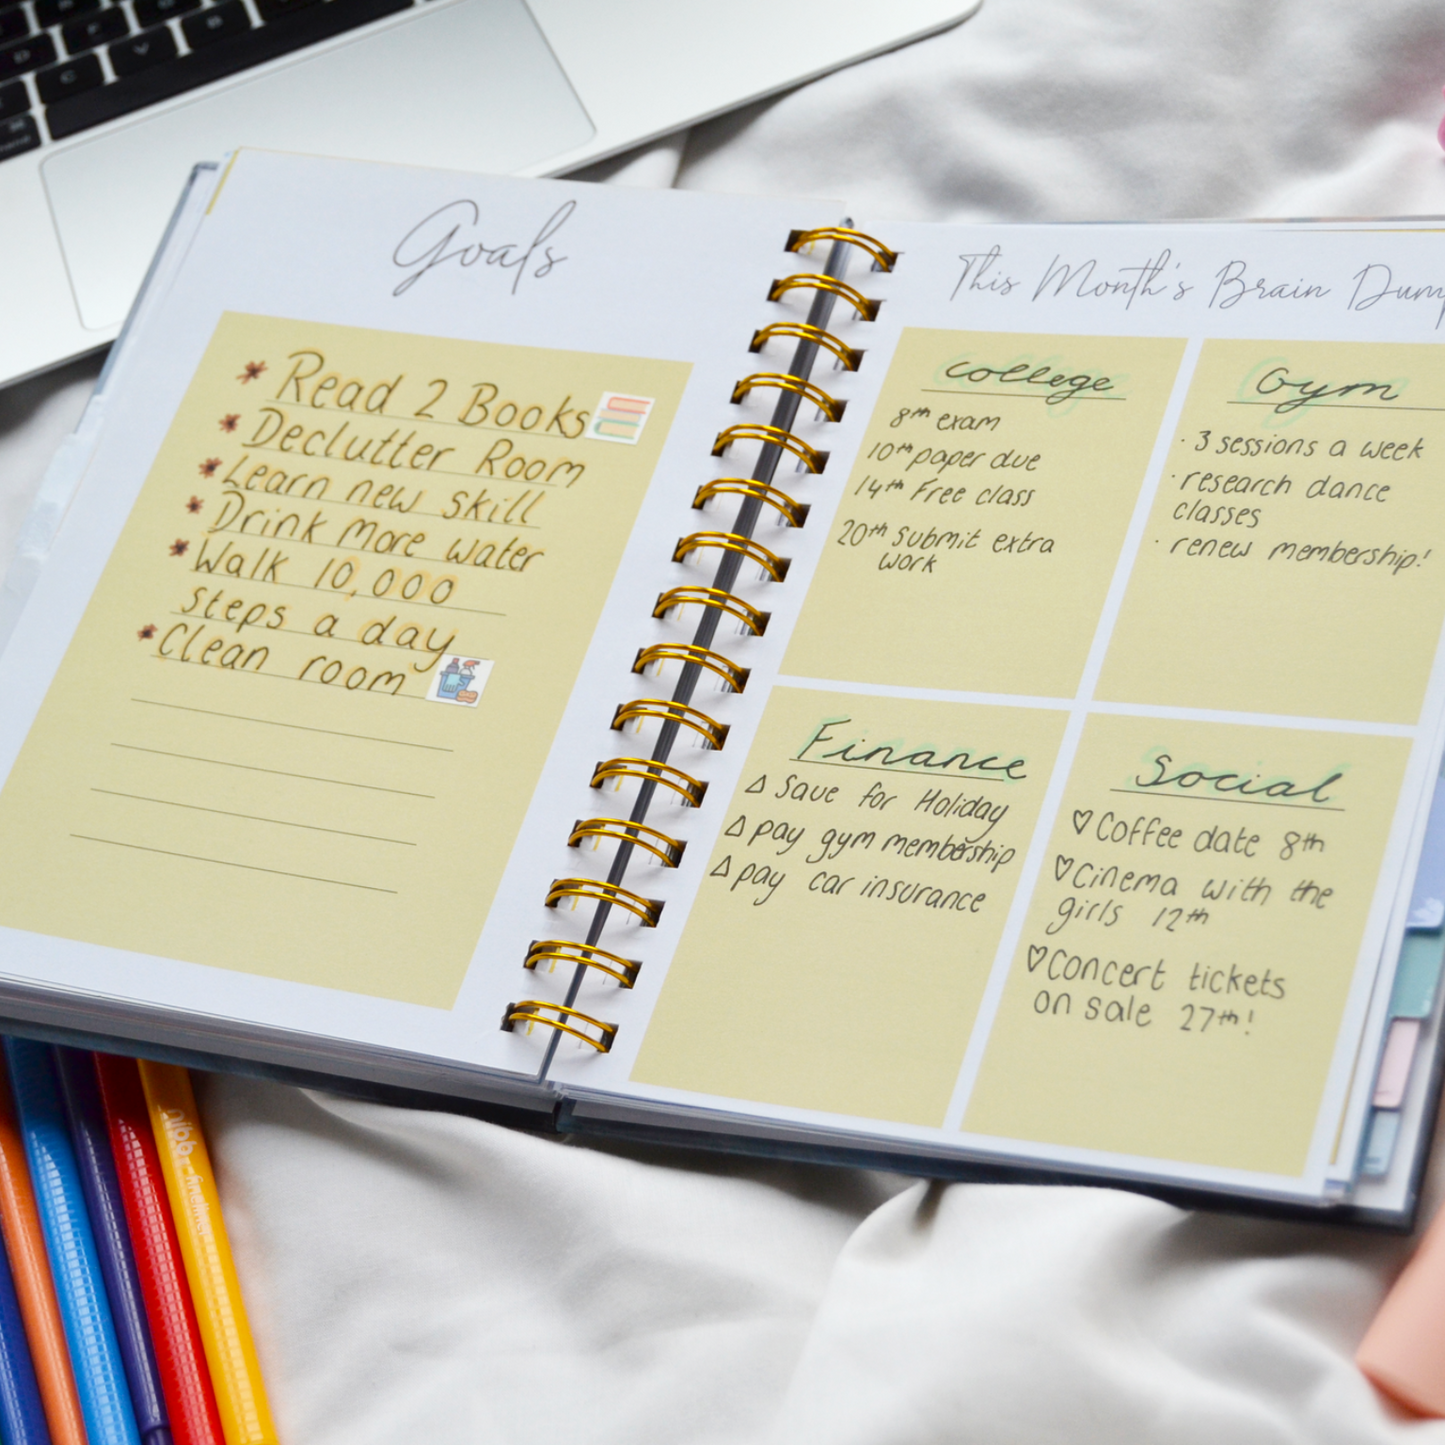 Goals
Read 2 Books
Declutter Room
Learn new skill
Drink more water
Walk 10,000
steps a day
Clean room
This Month's Brain
College
8th exam
10th paper due
14th Free class
20th submit extra
work
Gym
3 sessions a week
research dance
classes
renew membership!
Finance
Save for Holiday
pay gym membership
pay car insurance
Social
Coffee date 8th
Cinema with the
girls 12th
Concert tickets
on sale 27th!
nibb
fineliner